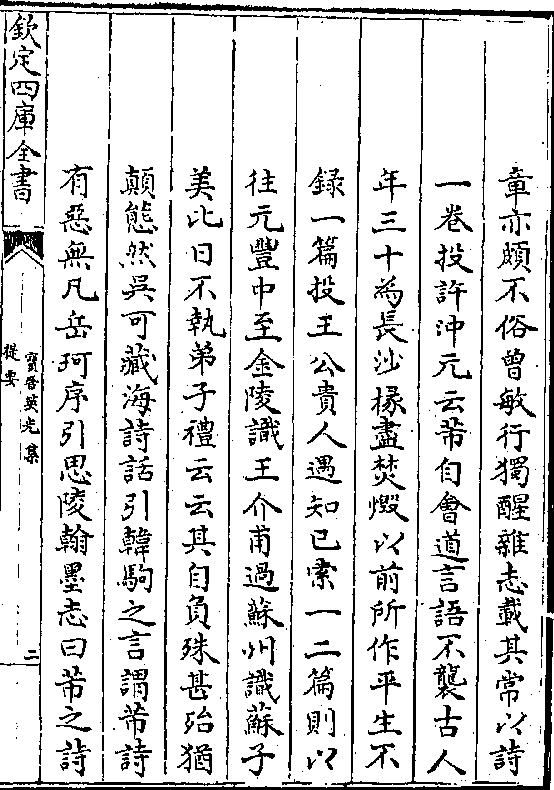 章亦頗不俗曾敏行獨醒雜志載其常以詩
一卷投許沖元云芾自會道言語不襲古人
年三十為長沙掾盡焚燬以前所作平生不
録一篇投王公貴人遇知已索一二篇則以
往元豐中至金陵識王介甫過蘇州識蘇子
美比日不執弟子禮云云其自負殊甚殆猶
顛態然吳可藏海詩話引韓駒之言謂芾詩
有惡無凡岳珂序引思陵翰墨志曰芾之詩
欽定四庫全書
寶晉英光集
提要
二